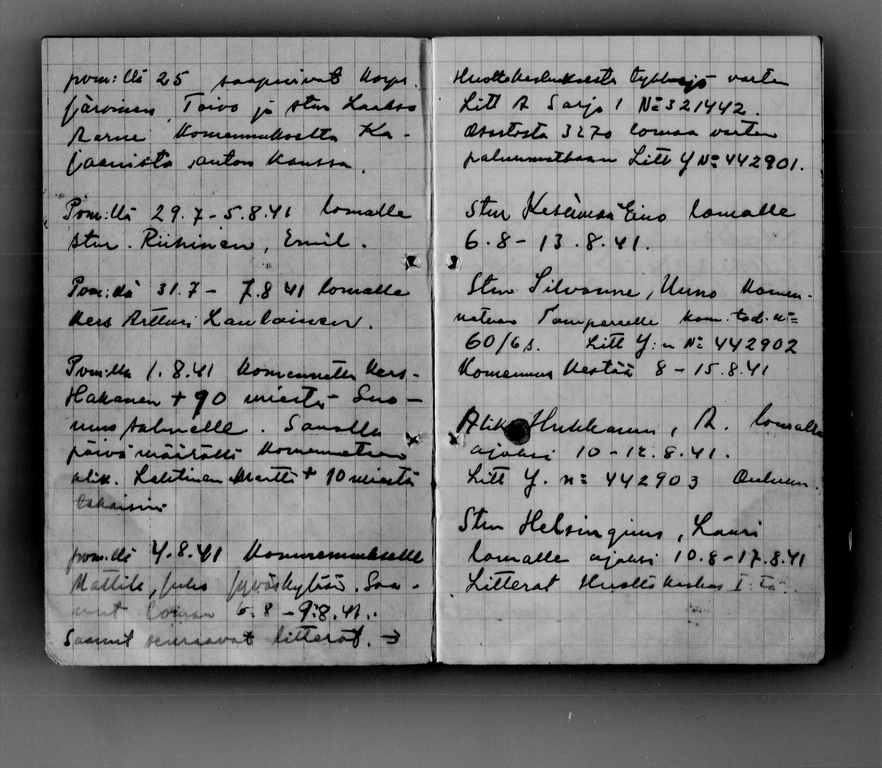 pvm:llä 25 saapuivat korpr.
Järvinen, Toivo ja stm Laakso
Aarne komennukselta Ka-
jaanista auton kanssa.
Pvm:llä 29.7-5.8.41 lomalle
stm. Riihinen, Emil.
Pvm:llä 31.7 - 7.8 41 lomalle
kers Artturi Laulainen.
Pvm:llä 1.8.41 komennettu kers-
Hakanen + 90 miestä Suo-
mussalmelle. Samalla
päivämäärällä komennettu
alik. Lehtinen Martti + 10 miestä
takaisin
pvm:llä 4.8.41 komennukselle
Mattila, Juho Jyväskylään. Saa-
nut loman 6.8 - 9.8.41.
Saanut seuraavat litterat. →
Huoltokeskuksesta varten
Litt A Sarja 1 No 321442.
Osastosta 3270 lomaa varten
paluumatkaan Litt Y No 442901.
Stm Eino lomalle
6.8 - 13.8.41.
Stm Silvonne, Uuno komen-
netaan Tampereelle kom.tod. n:o
60/6 s. Litt Y:n No 442902
Komennus kestää 8 - 15.8.41
Alik Hukkanen, A. lomalle
ajaksi 10 - 12.8.41.
Litt Y. n:o 442903 Ouluun.
Stm Helsingius, Lauri
lomalle ajaksi 10.8-17.8.41
Litterat Huoltokeskus I:tä